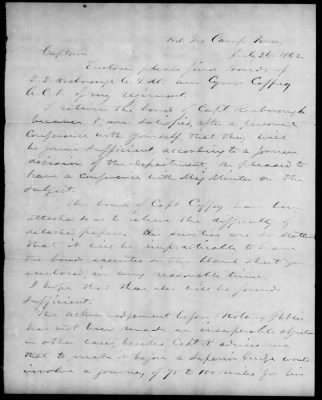 Camp
July 26 1862
Captain
Enclosed please find bonds of
and Cyrus Coffey
A.C.S. of my regiment.
I return the bond of Capt Rosborough
because I am satisfied, after a personal
conference with yourself that they will
be found sufficient according to a former
decision of the department. Be pleased to
have a conference with Maj on the
subject.
The bond of Capt Coffey has been
attached so as to relieve the difficulty of
detached papers. The sureties are so scattered
that it will be impracticable to have
the bond executed on the blank sheet you
enclosed, in any reasonable time.
I hope that this also will be found
sufficient.
The acknowledgement before Notary Public
has not been made an insuperable objection
in other cases, besides Capt R. advises me
that to make it before a Superior Judge would
involve a journey of 75 to 100 miles for his